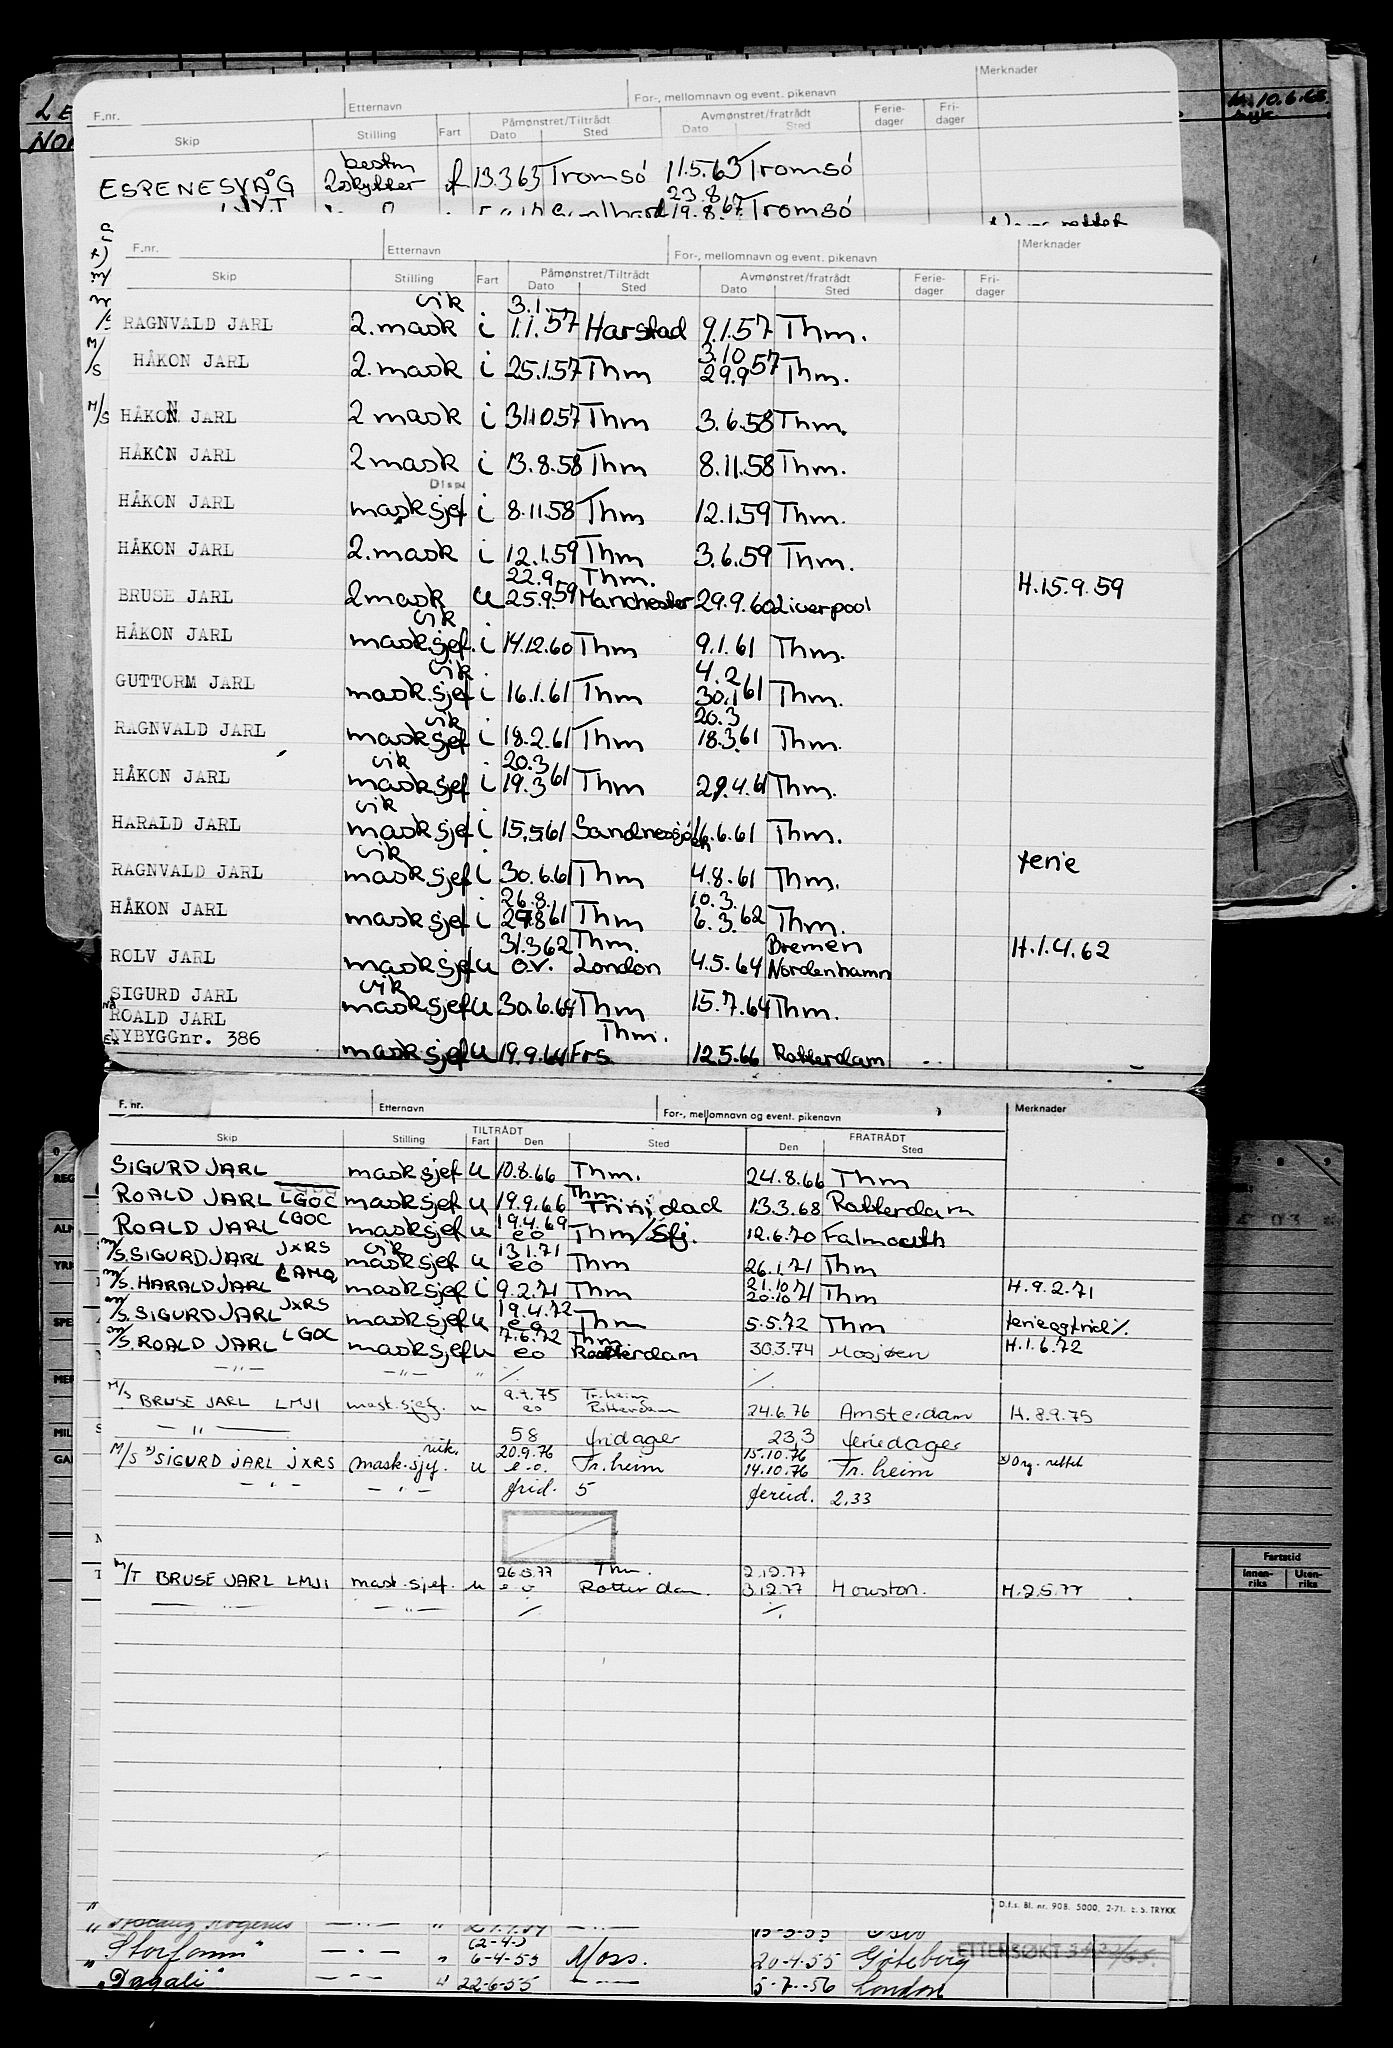 Merknader
F.nr.	Etternavn	For-, mellomnavn og event. pikenavn
Skip	Stilling	Fart	Påmønstret/Tiltrådt	Avmønstret/fratrådt	Ferie-dager	Fri-dager
Dato	Sted	Dato	Sted
bestm
ESPENESVÅG	2.skytter	f	13.3.63	Tromsö	11.5.63	Tromsö
23.8
19.8.67	Tromsö
10.6.68
F.nr.	Etternavn	For-, mellomnavn og event. pikenavn	Merknader
Skip	Stilling	Fart	Påmønstret/Tiltrådt	Avmønstret/fratrådt	Ferie-dager	Fri-dager
Dato	Sted	Dato	Sted
vik	3.1.
M/S RAGNVALD JARL	2.mask	i	1.1.57	Harstad	9.1.57	Thm.
3.10
M/S HÅKON JARL	2.mask	i	25.1.57	Thm	29.9.57	Thm.
M/S HÅKON JARL	2 mask	i	31.10.57	Thm	3.6.58	Thm.
HÅKON JARL	2 mask	i	13.8.58	Thm	8.11.58	Thm.
Disp
HÅKON JARL	masksjef	i	8.11.58	Thm	12.1.59	Thm.
HÅKON JARL	2.mask	i	12.1.59	Thm	3.6.59	Thm.
22.9.	Thm.
BRUSE JARL	2mask	u	25.9.59	Manchester	29.9.60	Liverpool	H.15.9.59
vik
HÅKON JARL	mask.sjef.	i	14.12.60	Thm	9.1.61	Thm.
vik	4.2
GUTTORM JARL	mask.sjef	i	16.1.61	Thm	30.1.61	Thm.
vik	20.3
RAGNVALD JARL	masksjef	i	18.2.61	Thm	18.3.61	Thm.
vik	20.3
HÅKON JARL	masksjef	i	19.3.61	Thm	29.4.61	Thm.
vik
HARALD JARL	masksjef	i	15.5.61	Sandnessjöen	16.6.61	Thm.
vik	ferie
RAGNVALD JARL	masksjef	i	30.6.61	Thm	4.8.61	Thm.
26.8.	10.3.
HÅKON JARL	masksjef	i	29.8.61	Thm	6.3.62	Thm.
31.3.62	Thm.	Bremen	H.1.4.62
ROLV JARL	masksjef	u	o.v.	London	4.5.64	Nordenhamn
vik
SIGURD JARL	masksjef	u	30.6.64	Thm	15.7.64	Thm.
ROALD JARL	Thm.
NYBYGGnr. 386	masksjef	u	19.9.64	Frs	12.5.66	Rotterdam
F. nr.	Etternavn	For-, mellomnavn og event. pikenavn	Merknader
Skip	Stilling	TILTRÅDT	FRATRÅDT
Fart	Den	Sted	Den	Sted
SIGURD JARL	masksjef	u	10.8.66	Thm.	24.8.66	Thm
Thm.
ROALD JARL LGOC	masksjef	u	19.9.66	Trinidad	13.3.68	Rotterdam
19.4.69
ROALD JARL LGOC	masksjef	u	eo	Thm/Sfj.	12.6.70	Falmouth
vik	13.1.71
m/s. SIGURD JARL JXRS	masksjef	u	eo	Thm	26.1.71	Thm
21.10
m/s. HARALD JARL LAMQ	masksjef	i	9.2.71	Thm	20.10.71	Thm	H.9.2.71
19.4.72
m/s. SIGURD JARL JXRS	masksjef	u	eo	Thm	5.5.72	Thm	ferieogfrid %.
7.6.72	Thm
m/s. ROALD JARL LGOC	masksjef	u	eo	Rotterdam	30.3.74	Mosjøen	H.1.6.72
— " —	— " —	"	./.	./.
9.7.75	Tr.heim
M/S BRUSE JARL LMJI	mask.sjef.	u	eo	Rotterdam	24.6.76	Amsterdam	H.8.9.75
— " —	58	fridager	23,3	feriedager
vik.	20.9.76	15.10.76
M/S x) SIGURD JARL JXRS	mask.sjef.	u	e.o.	Tr.heim	14.10.76	Tr.heim	x) Org. rettet
— " —	— " —	frid.	5	feried.	2,33
26.5.77	Thm.	2.12.77
M/T BRUSE JARL LMJI	mask.sjef.	u	e.o	Rotterdam.	3.12.77	Houston.	H.2.5.77
— " —	— " —	./.	./.
D.f.s. Bl. nr. 908. 5000. 2-71. E. S. TRYKK
Fartstid
Innen-riks	Uten-riks
" Storfonn"	— " —	"	6-4-55	Moss.	20-4-55	Göteborg	ETTERSØKT
" "Dagali"	— " —	"	22-6-55	— " —	5-7-56	London